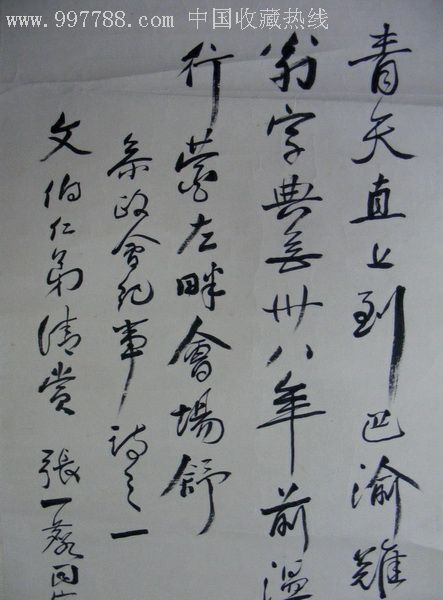 www.997788.com 中国收藏热线
青天直上到巴渝雖
翁字典長卅八年前溫
行營左畔會場舒
參政會紀事詩之一
文伯仁弟清賞 張一麐同客